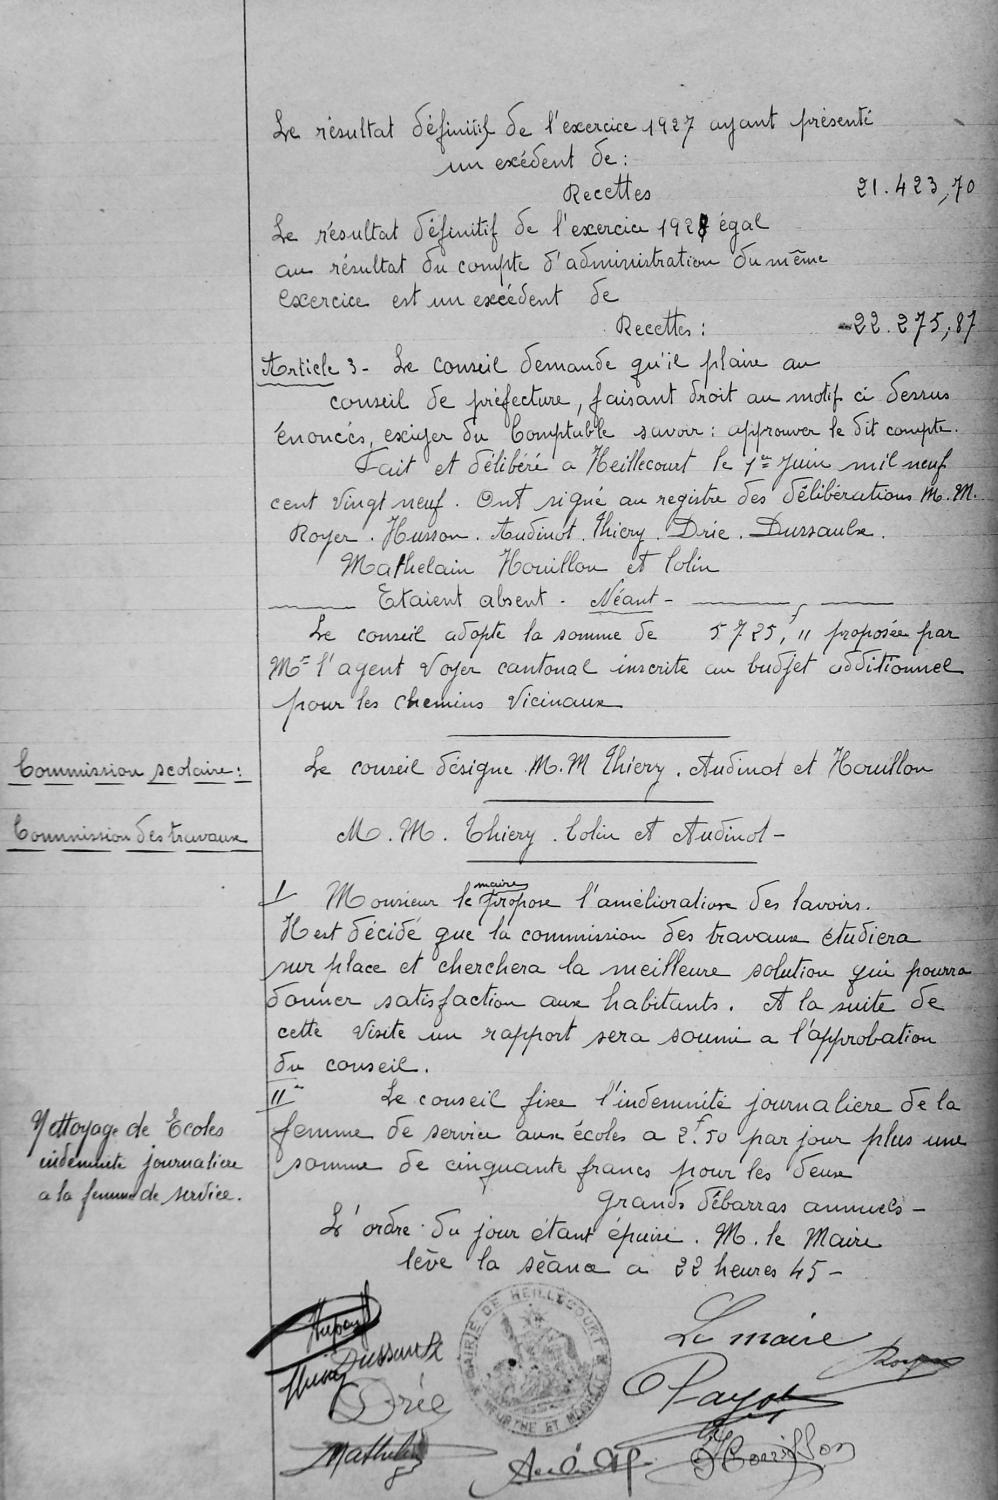 Le résultat définitif de l'exercice 1927 ayant présenté
un exédent de :
Recettes 21.423,70
Le résultat définitif de l'exercice 1928 égal
au résultat du compte d'administration du même
Exercice est un excédent de
Recettes : 22.275,87
Article 3 - Le conseil demande qu'il plaire au
conseil de préfecture, faisant droit au motif ci dessus
énoncés, exiger du Comptable savoir : approuver le dit compte.
Fait et délibéré a Heillecourt le 1er Juin mil neuf
cent vingt neuf. Ont signé au registre des délibérations M.M.
Royer. Husson. Audinot. Thiery. Drée. Dussaulx.
Mathelain Houillon et Colin
Etaient absent - Néant -
Le conseil adopte la somme de 5725f,,, proposée par
Mr l'agent Voyer cantonal inscrite au budjet additionnel
pour les chemins vicinaux
Commission scolaire : Le conseil désigne M.M Thiery. Audinot et Houillon
Commission des travaux M.M. Thiery. Colin et Audinot -
I Monsieur le maire propose l'amélioration des lavoirs.
Il est décidé que la commission des travaux étudiera
sur place et cherchera la meilleure solution qui pourra
donner satisfaction aux habitants. A la suite de
cette visite un rapport sera soumi a l'approbation
du conseil.
II Le conseil fixe l'indemnité journalière de la
Nettoyage de Ecoles
femme de service aux écoles a 2f.50 par jour plus une
indemnité journaliere
somme de cinquante francs pour les deux
a la femme de service.
grands débarras annuels -
L'ordre du jour étant épuisé. M. le Maire
lève la séance a 22 heures 45 -
MAIRIE DE HEILLECOURT
MEURTHE ET MOSELLE
Le maire
Dussaulx
Drée
Mathelain
Houillon